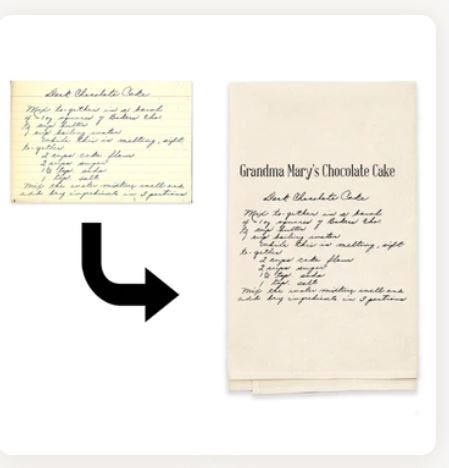 Dark Chocolate Cake
Mix to-gether in a bowl
of 1oz squares of Bakers Cho.
1/2 cup butter
1 cup boiling water
While this is melting, sift
to-gether
2 cups cake flour
2 cups sugar
1½ tsp. soda
1 tsp. salt
Mix the water mixture well and
add dry ingredients in 3 portions
Grandma Mary's Chocolate Cake
Dark Chocolate Cake
Mix to-gether in a bowl
of 1oz squares of Bakers Cho.
1/2 cup butter
1 cup boiling water
While this is melting, sift
to-gether
2 cups cake flour
2 cups sugar
1½ tsp soda
1 tsp. salt
Mix the water mixture well and
add dry ingredients in 3 portions